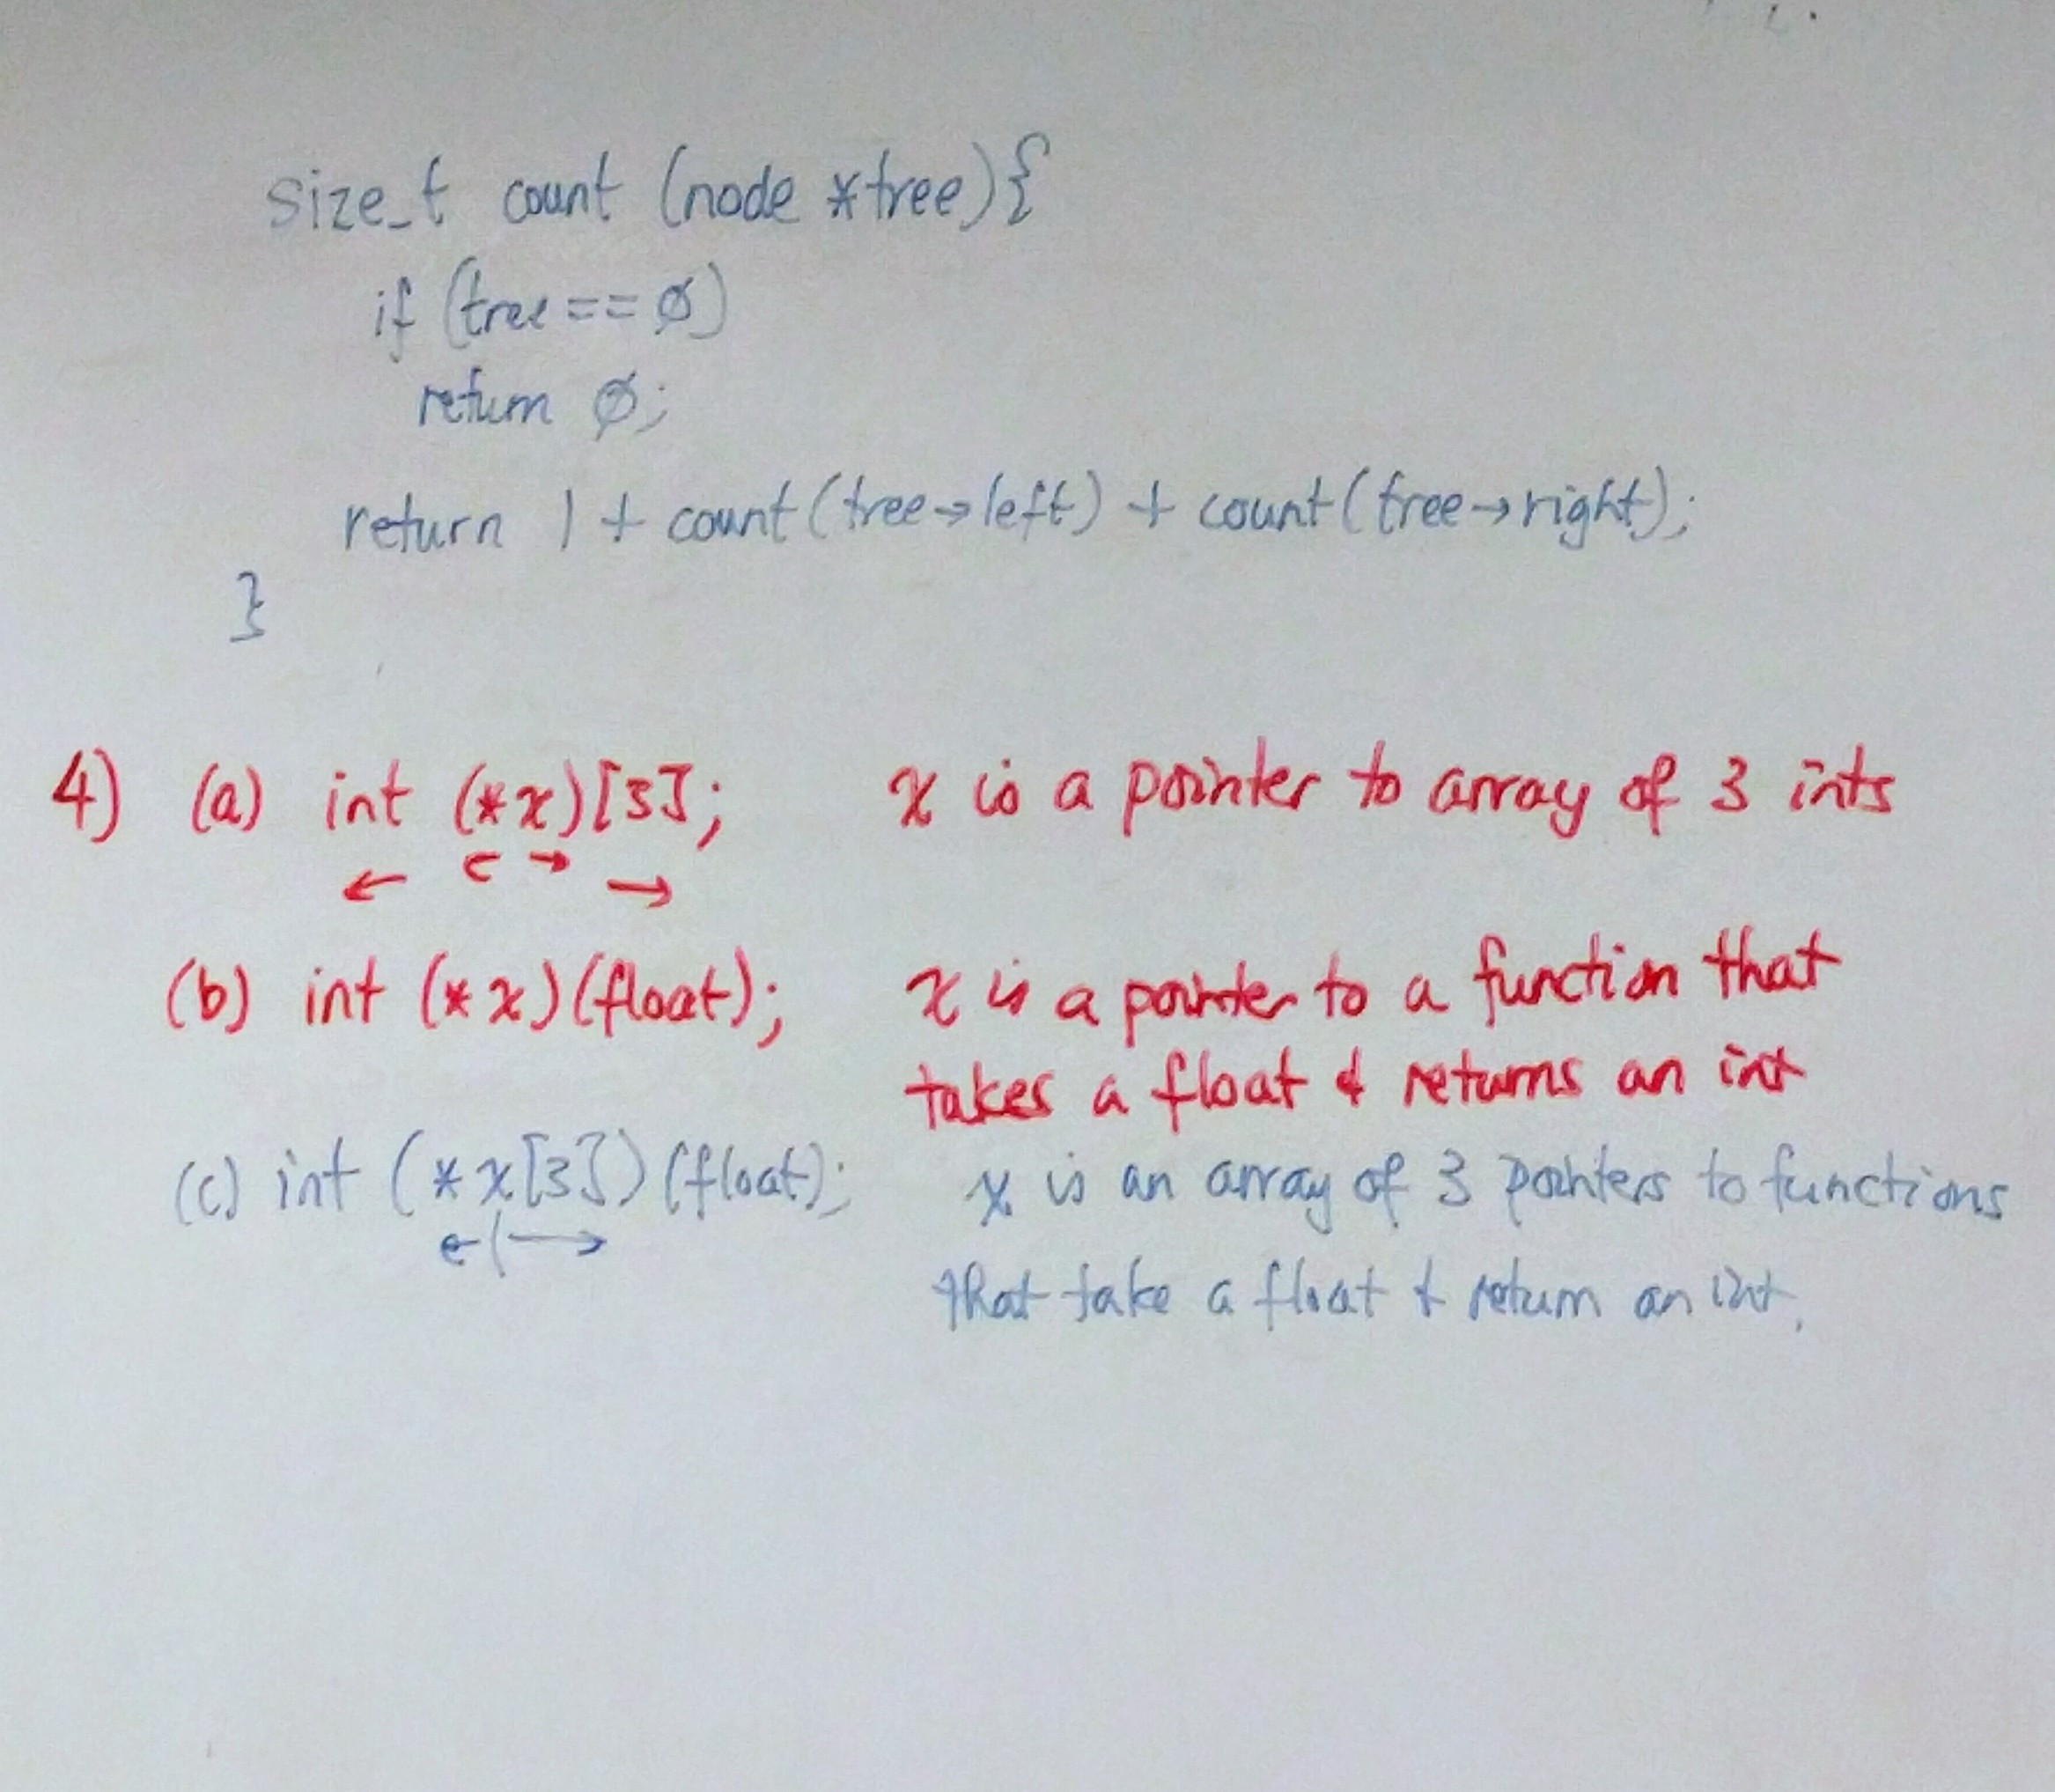 size_t count (node *tree){
if (tree == 0)
return 0;
return 1 + count(tree→left) + count(tree→right);
}
4) (a) int (*x)[3]; x is a pointer to array of 3 ints
← ← → →
(b) int (*x)(float); x is a pointer to a function that
takes a float & returns an int
(c) int (*x[3])(float); x is an array of 3 pointers to functions
←|→
that take a float & return an int.